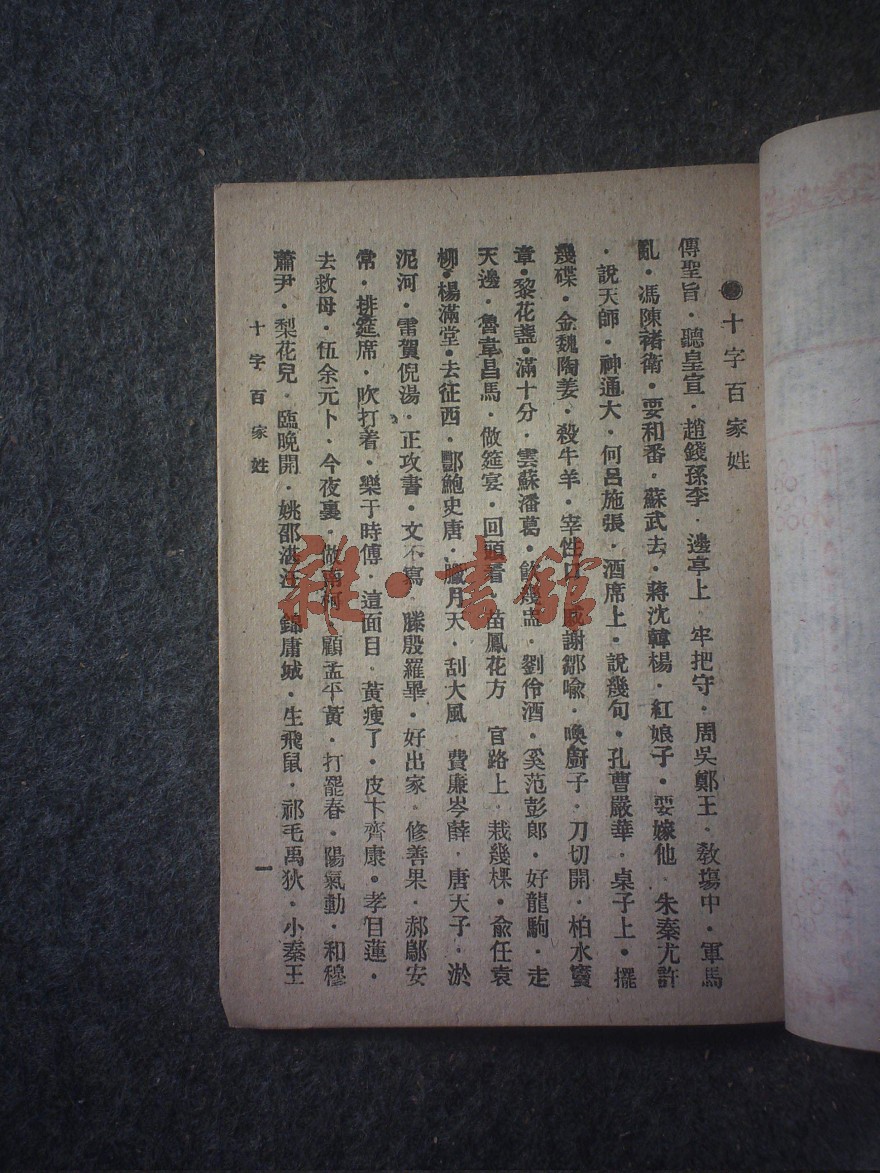 十字百家姓
傳聖旨·聽皇宣·趙錢孫李·邊亭上·牢把守·周吳鄭王·敎塲中·軍馬
亂·馮陳褚衛·要和番·蘇武去·蔣沈韓楊·紅娘子·要嫁他·朱秦尤許
·說天師·神通大·何呂施張·酒席上·說幾句·孔曹嚴華·桌子上·擺
幾碟·金魏陶姜·殺牛羊·宰牲口·戚謝鄒喩·喚廚子·刀切開·柏水竇
章·黎花盞·滿十分·雲蘇潘葛·飮幾盅·劉伶酒·奚范彭郞·好龍駒·走
天邊·魯韋昌馬·做筵宴·回頭看·苗鳳花方 官路上·栽幾棵·兪任袁
柳·楊滿堂·去征西·酆鮑史唐·臘月天·刮大風 費廉岑薛·唐天子·淤
泥河·雷賀倪湯·正攻書·文不寫 滕殷羅畢·好出家·修善果·郝鄔安
常·排筵席·吹打着·樂于時傅·這面目·黃瘦了·皮卞齊康·孝目蓮·
去救母·伍余元卜·今夜裏·做南柯·顧孟平黃·打罷春·陽氣動·和穆
蕭尹·梨花兒·臨晚開·姚邵湛汪 錦庸城·生飛鼠·祁毛禹狄·小秦王
十字百家姓 一
雜·書館